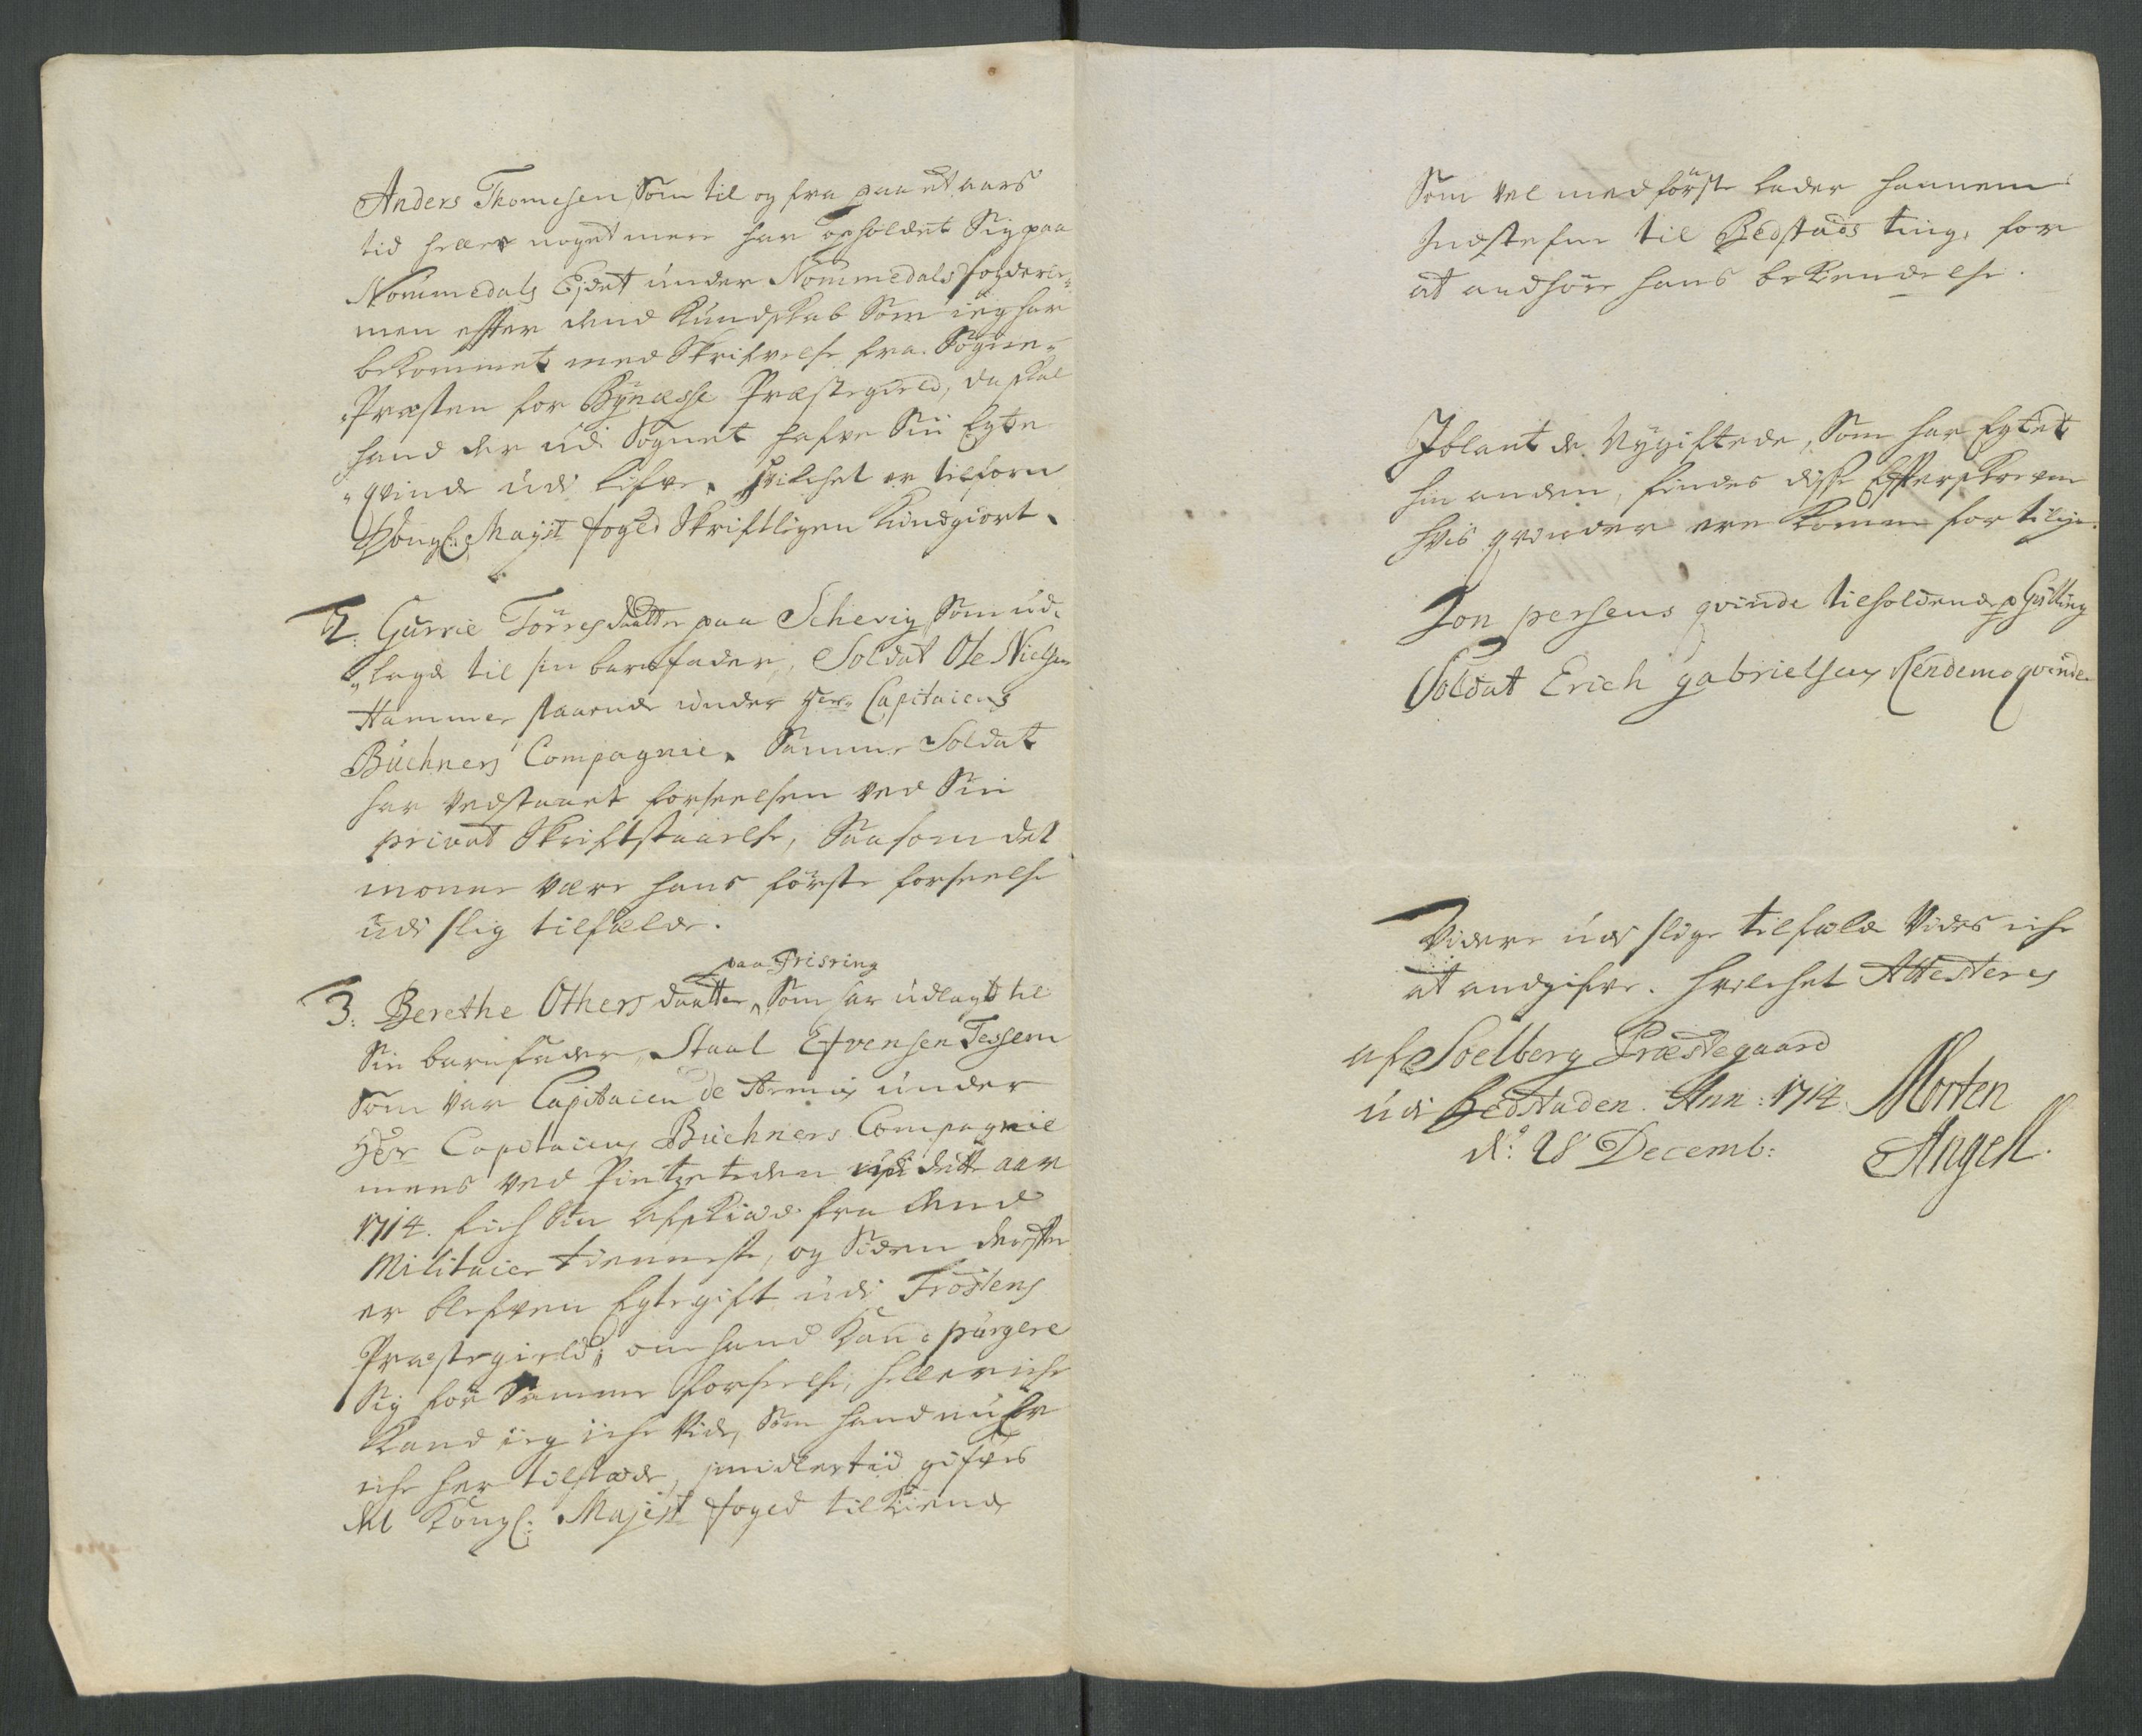 Anders Thomesen Som til og fra paa et aars
tid heller noget mere har opholdet Sig paa
Nommedals Eydet under Nommedals fogderie,
men effter dend Kundskab Som ieg har
bekommet med Skrifvelse fra Sogne-
Præsten for Bynæsse Præstegield, da skal
hand der udi Sognet hafve Sin Egte
qvinde udi Lifve, hvilchet er tilforn
Kongl: Mayst foged Skriftligen Kundgiort.
2. Gurrie Törresdaatter paa Schevig, Som ud-
lagde til sin barnfader, Soldat Ole Nielsen
Hammer staaende under Herr Capitaiens
Büchners Compagnie. Samme Soldat
har vedstaaet forseelsen ved Sin
privat Skriftstaaelse, Saasom det
monne være hans förste forseelse
udi slig tilfælde.
paa Trisring
3. Berethe Othersdaatter, Som har udlagt til
Sin barnfader, Staal Efvensen Tessem
Som var Capitaien de Armis under
Herr Capitaiens Büchners Compagnie
mens ved Pintzetiden udi dette aar
1714. fich Sin afskeed fra dend
Militaire tienneste, og Siden dereffter
er blefven Egtegift udi Frostens
Præstegield, om hand Kand purgere
Sig for Samme forseelse, heller iche
Kand ieg iche vide, Som hand nu er
iche her tilstæde, imidlertid gifves
det Kongl: Majest foged tilkiende
Som vel med förste lader hannem
Indstefne til Bedstads ting, for
at andhöre hans bekiendelse.
Iblant de Nygiftede, Som har Egtet
hin anden, findes disse Effterskrevne
hvis qvinder ere Komne for tilig.
Jon persens qvinde tilholdende p Gylling
Soldat Erich gabrielsens Kendemo qvinde
Videre udi slige tilfælde Vides iche
at andgifve. hvilchet Attesteres
af Soelberg Præstegaard
udi Bedstaden. Ann: 1714. Morten
d: 28 Decemb: Angell.